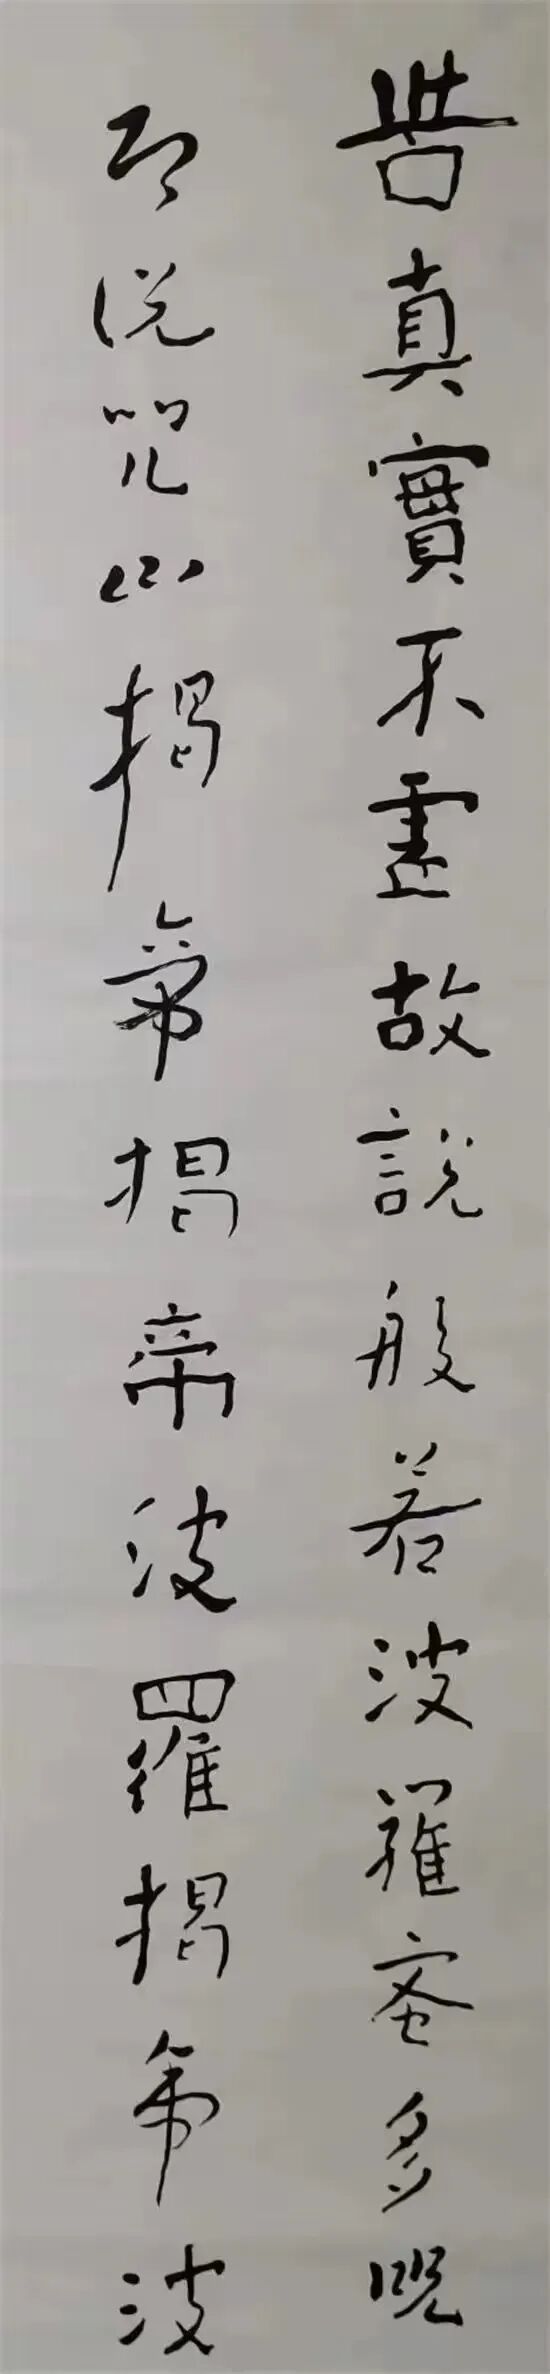 苦真實不虛故說般若波羅蜜多呪
即说咒曰揭帝揭帝波羅揭帝波